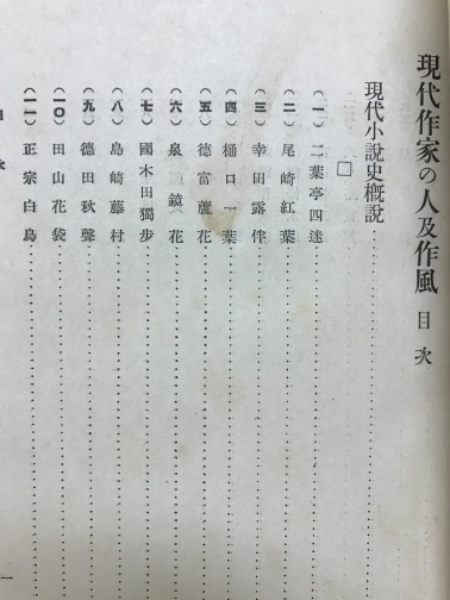 現代作家の人及作風 目次
現代小說史槪說
□
(一) 二葉亭四迷
(二) 尾崎紅葉
(三) 幸田露伴
(四) 樋口一葉
(五) 德富蘆花
(六) 泉鏡花
(七) 國木田獨步
(八) 島崎藤村
(九) 德田秋聲
(一〇) 田山花袋
(一一) 正宗白鳥
目次
一